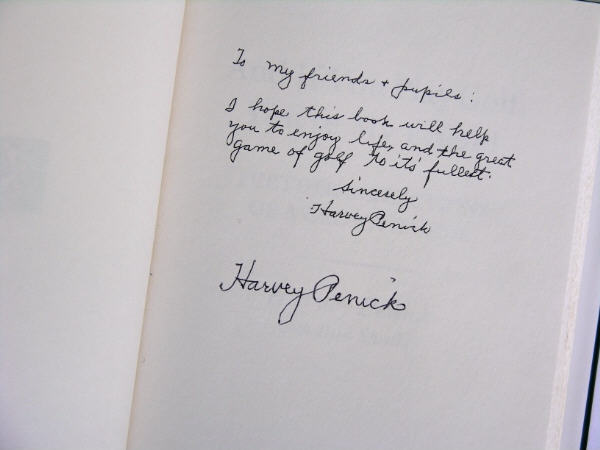 To my friends + pupils:
I hope this book will help
you to enjoy life, and the great
game of golf to it's fullest.
Sincerely
Harvey Penick
Harvey Penick